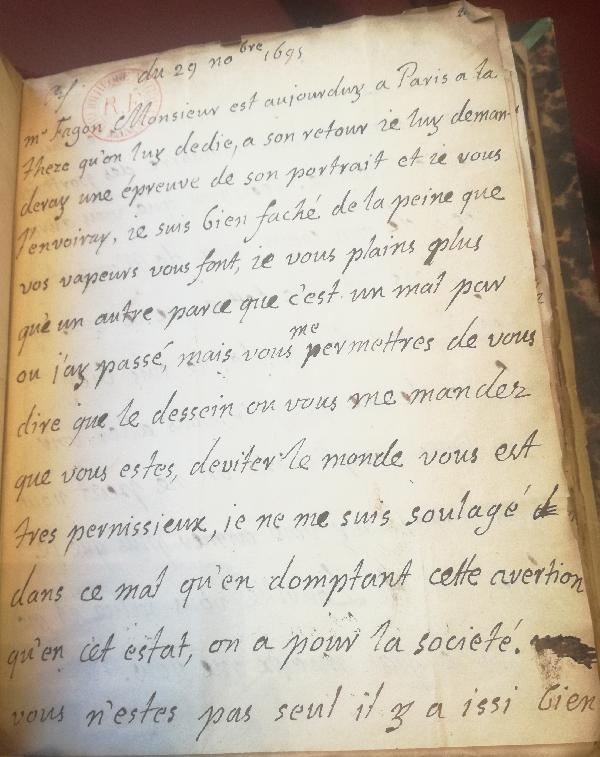 du 29 nobre 1695
R.F.
mr Fagon Monsieur est aujourduy a Paris a la
theze qu'on luy dedie, a son retour ie luy deman-
deray une épreuve de son portrait et ie vous
l'envoiray, ie suis bien faché de la peine que
vos vapeurs vous font, ie vous plains plus
qu'un autre parce que c'est un mal par
ou j'ay passé, mais vous me permettres de vous
dire que le dessein ou vous me mandez
que vous estes, deviter le monde vous est
tres pernissieux, ie ne me suis soulagé
dans ce mal qu'en domptant cette avertion
qu'en cet estat, on a pour la societé.
vous n'estes pas seul il y a issi bien